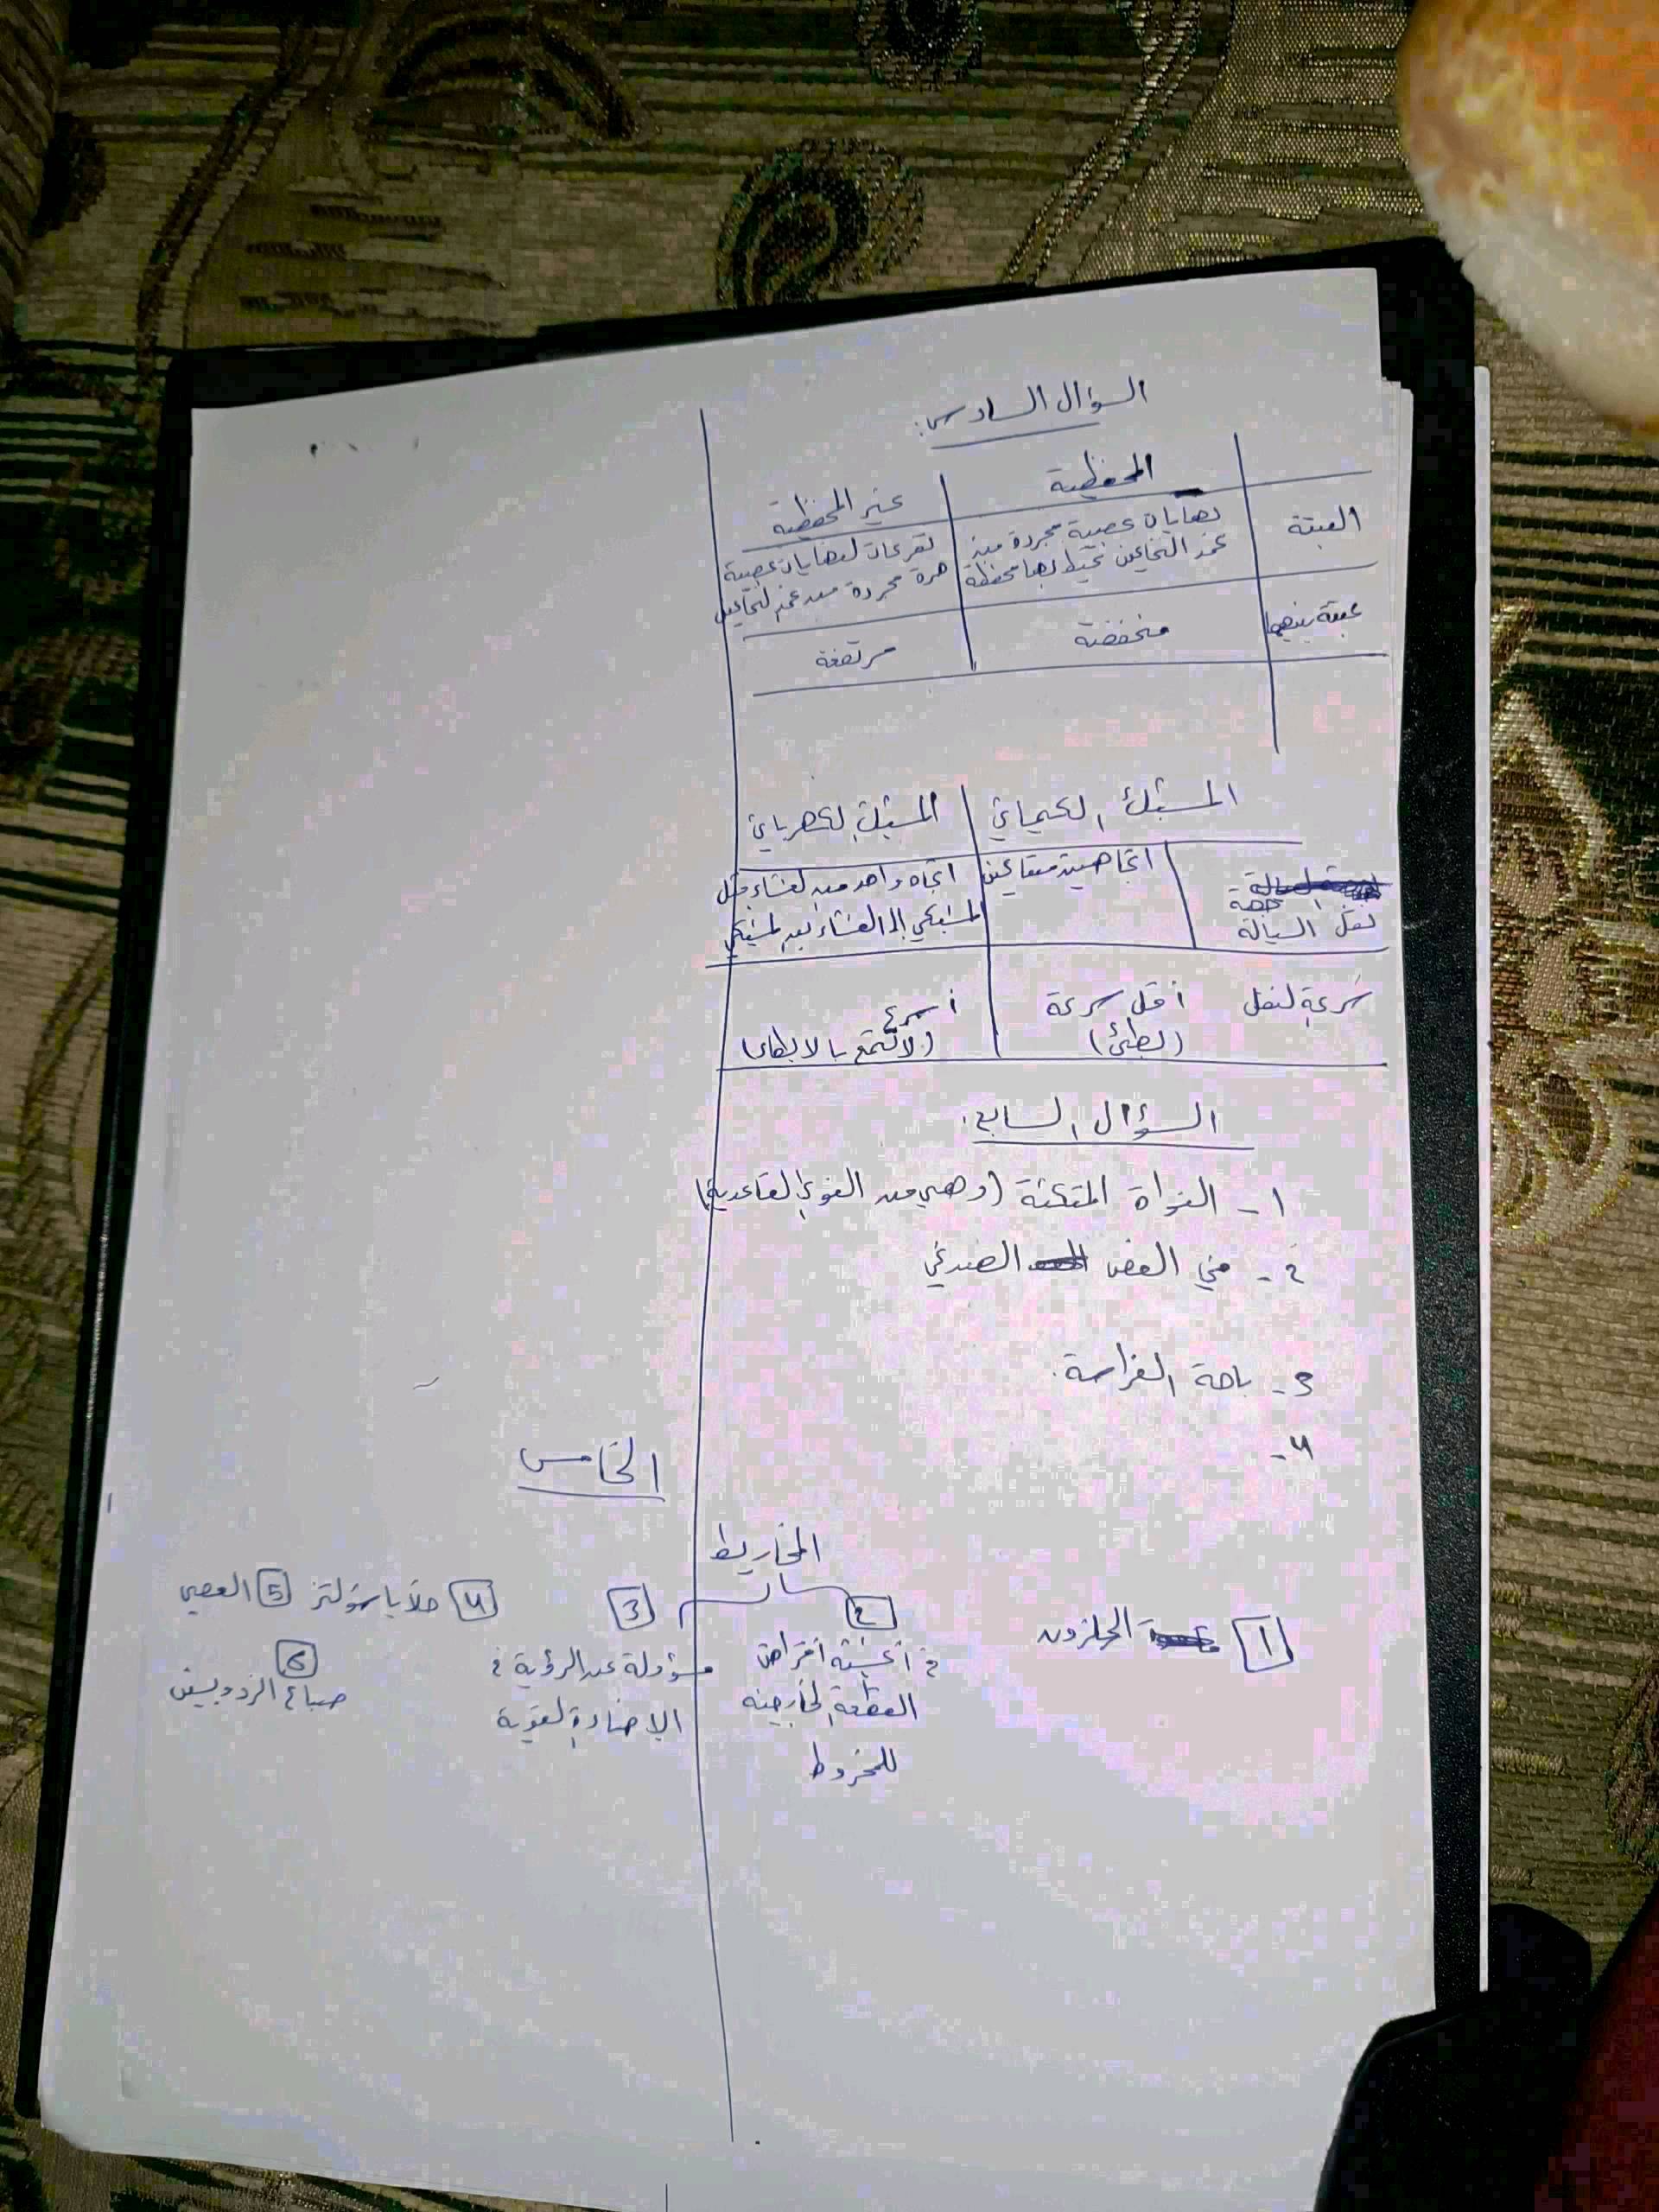 السؤال السادس:
المحفظية
غير المحفظية
البنية
نهايات عصبية مجردة من
غمد النخاعين تحيط بها محفظة
تفرعات لنهايات عصبية
حرة مجردة من غمد النخاعين
عتبة تنبيهها
منخفضة
مرتفعة
المشبك الكيميائي
المشبك الكهربائي
جهة
نقل السيالة
اتجاهين متعاكسين
اتجاه واحد من الغشاء قبل
المشبكي إلى الغشاء بعد المشبكي
سرعة النقل
أقل سرعة
(بطيء)
أسرع
(لا تتمتع بالابطاء)
السؤال السابع:
1- النواة المتكئة (وهي من النوى القاعدية)
2- في الفص الصدغي
3- باحة الفراسة.
4-
الخامس
المخاريط
1 الحلزون
2
أغشية أقراص
القطعة الخارجية
للمخروط
3
مسؤولة عن الرؤية في
الإضاءة القوية
4 خلايا شولتز
5 العصي
6
صباغ الرودوبسين